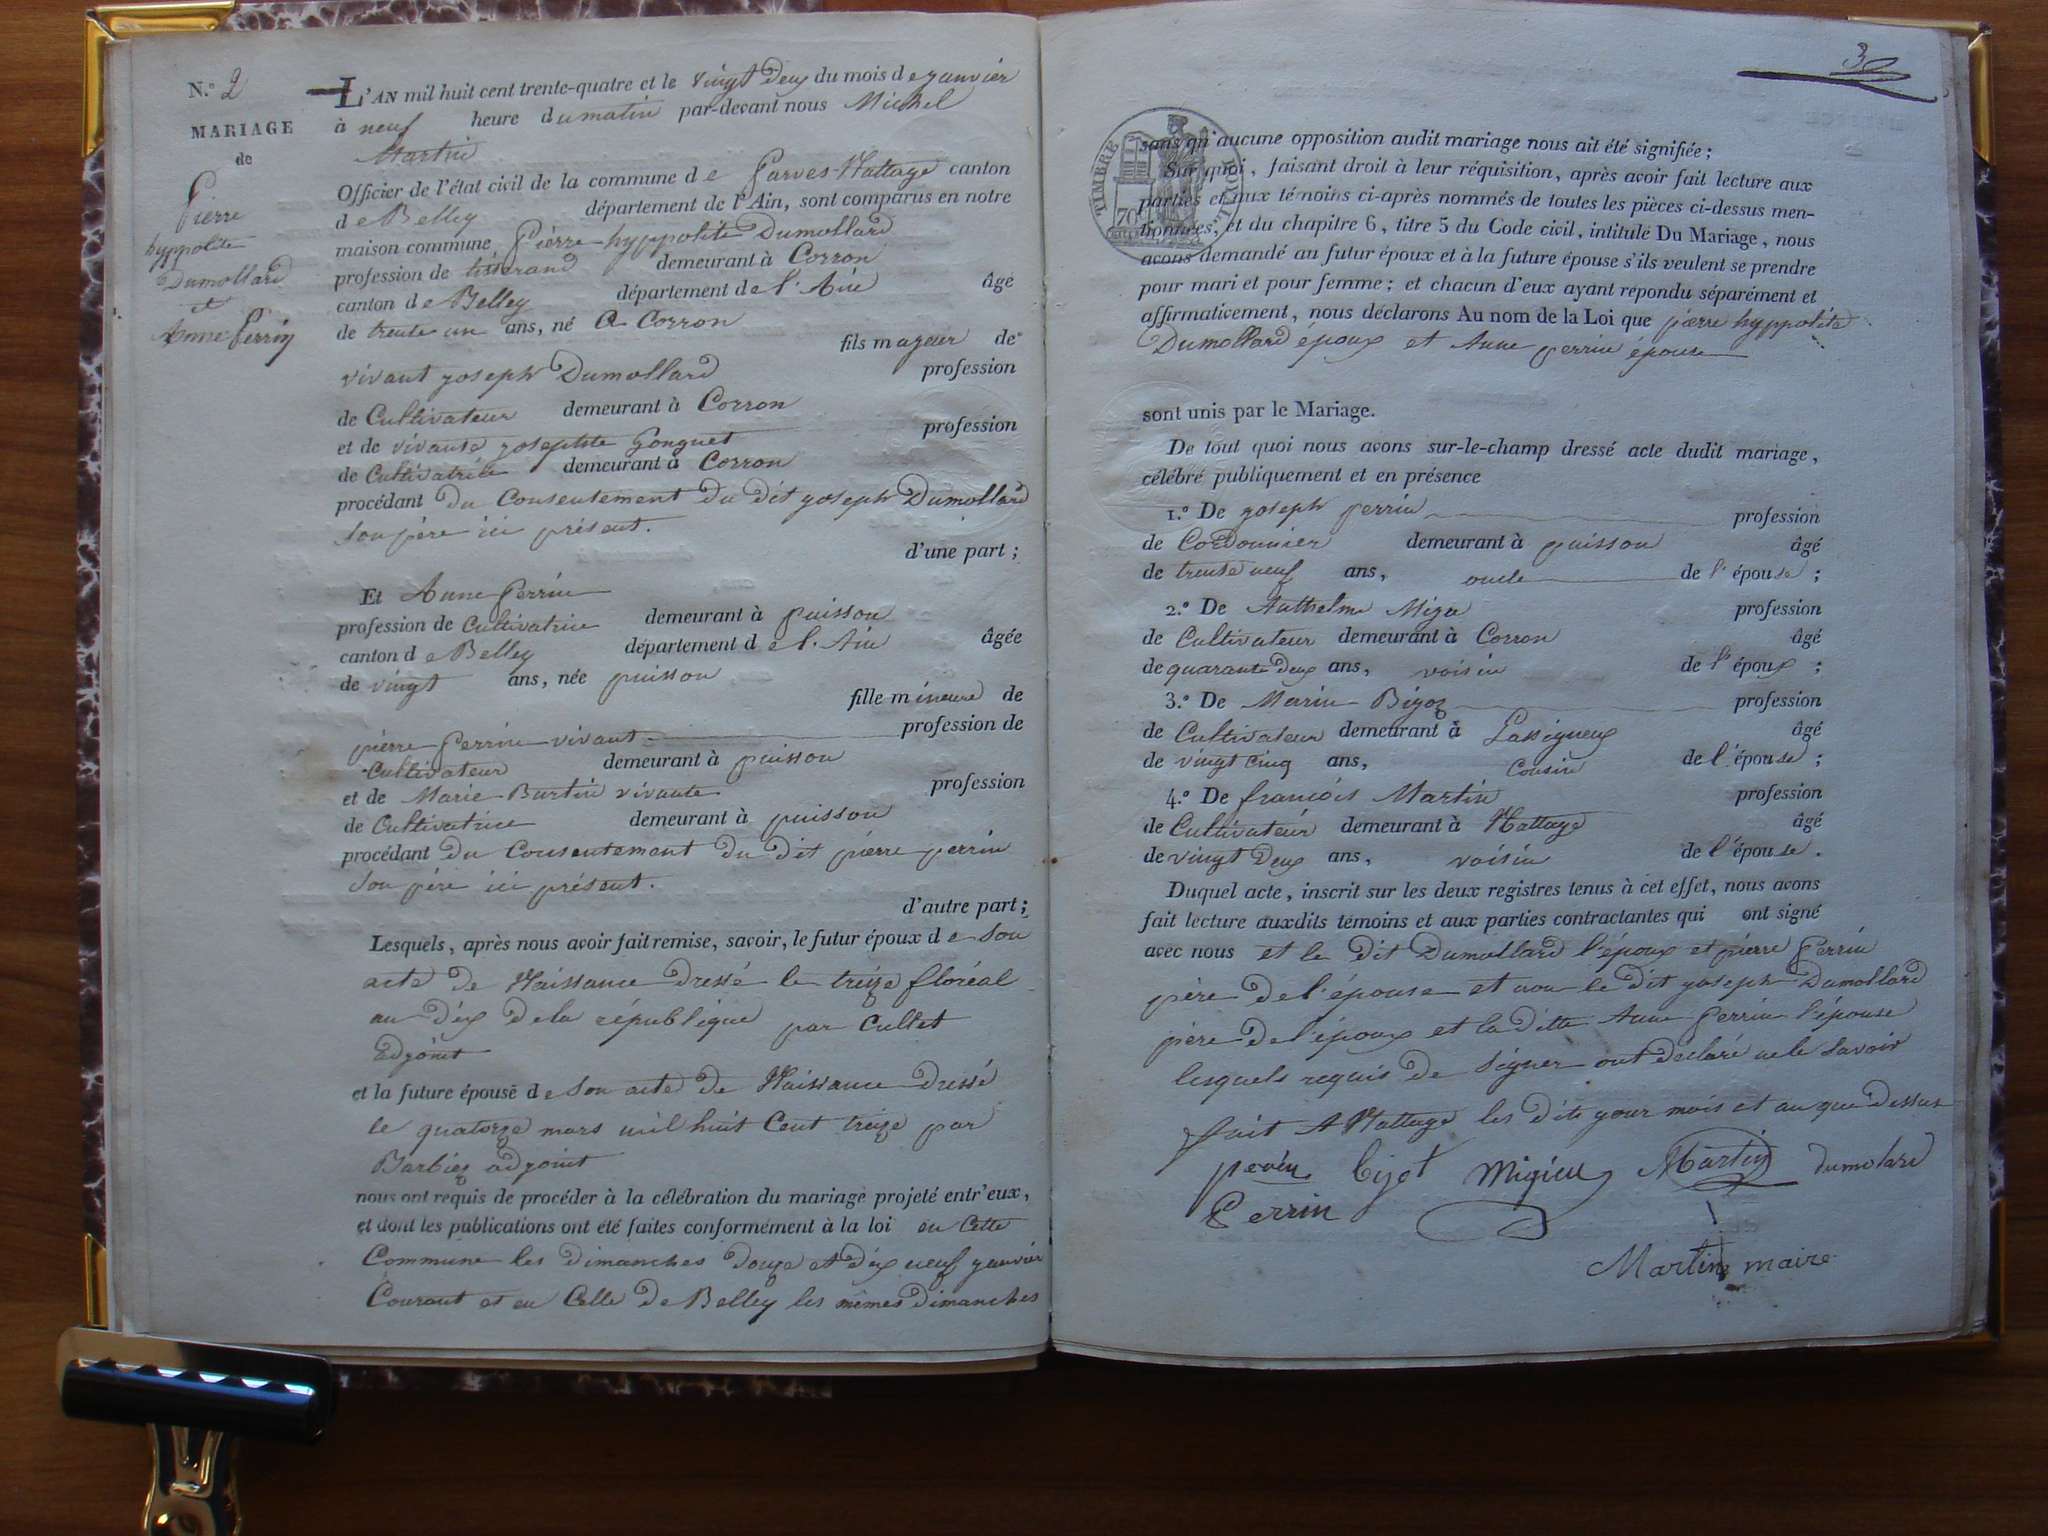 N.º 2
MARIAGE
de
Pierre
hyppolite
Dumollard
et
Anne Perrin
L'AN mil huit cent trente-quatre et le vingt deux du mois de janvier
à neuf heure du matin par-devant nous Michel
Martin
Officier de l'état civil de la commune de Parves-Nattage canton
de Belley département de l'Ain, sont comparus en notre
maison commune Pierre hyppolite Dumollard
profession de tisserand demeurant à Corron
canton de Belley département de l'Ain âgé
de trente un ans, né a Corron
fils majeur de
vivant joseph Dumollard profession
de Cultivateur demeurant à Corron
et de vivante josephte Gonguet profession
de Cultivatrice demeurant à Corron
procédant du Consentement du dit joseph Dumollard
son père ici présent.
d'une part ;
Et Anne Perrin
profession de Cultivatrice demeurant à puisson
canton de Belley département de l'Ain âgée
de vingt ans, née puisson
fille mineure de
pierre Perrin vivant profession de
Cultivateur demeurant à puisson
et de Marie Burtin vivante profession
de Cultivatrice demeurant à puisson
procédant du Consentement du dit pierre perrin
son père ici présent.
d'autre part ;
Lesquels, après nous avoir fait remise, savoir, le futur époux de son
acte de Naissance dressé le treize floréal
an dix de la république par Cullet
adjoint
et la future épouse de son acte de Naissance dressé
le quatorze mars mil huit Cent treize par
Barbier adjoint
nous ont requis de procéder à la célébration du mariage projeté entr'eux,
et dont les publications ont été faites conformément à la loi en Cette
Commune les dimanches douze et dix neuf janvier
Courant et en Celle de Belley les mêmes dimanches
3
TIMBRE ROYAL
70
sans qu'aucune opposition audit mariage nous ait été signifiée ;
Sur quoi, faisant droit à leur réquisition, après avoir fait lecture aux
parties et aux témoins ci-après nommés de toutes les pièces ci-dessus men-
tionnées, et du chapitre 6, titre 5 du Code civil, intitulé Du Mariage, nous
avons demandé au futur époux et à la future épouse s'ils veulent se prendre
pour mari et pour femme ; et chacun d'eux ayant répondu séparément et
affirmativement, nous déclarons Au nom de la Loi que pierre hyppolite
Dumollard époux et Anne perrin épouse
sont unis par le Mariage.
De tout quoi nous avons sur-le-champ dressé acte dudit mariage,
célébré publiquement et en présence
1.º De joseph perrin profession
de Cordonnier demeurant à puisson âgé
de trente neuf ans, oncle de l'épouse ;
2.º De Anthelme profession
de Cultivateur demeurant à Corron âgé
de quarante deux ans, voisin de l'époux ;
3.º De Marin Bigoz profession
de Cultivateur demeurant à Lassigneux âgé
de vingt cinq ans, Cousin de l'épouse ;
4.º De françois Martin profession
de Cultivateur demeurant à Nattage âgé
de vingt deux ans, voisin de l'épouse.
Duquel acte, inscrit sur les deux registres tenus à cet effet, nous avons
fait lecture auxdits témoins et aux parties contractantes qui ont signé
avec nous et le dit Dumollard l'époux et pierre Perrin
père de l'épouse et non le dit joseph Dumollard
père de l'époux et la ditte Anne Perrin l'épouse
lesquels requis de signer ont déclaré ne le savoir
fait A Nattage les dits jour mois et an que dessus
perein bijot Migieu Martin dumolard
Perrin
Martin maire